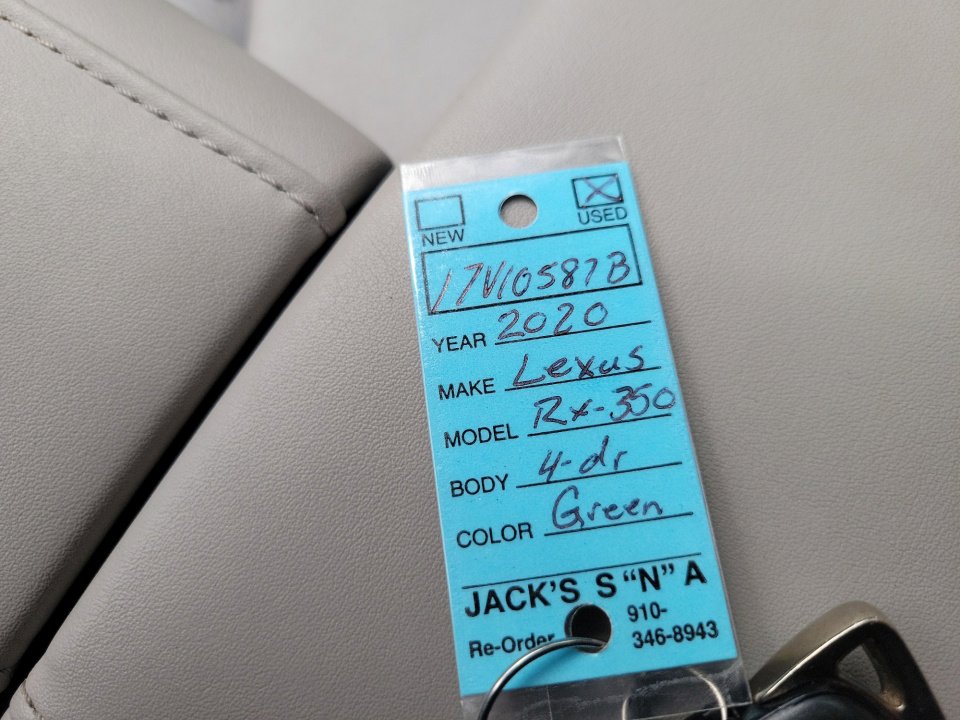 NEW USED
17V10587B
YEAR 2020
MAKE Lexus
MODEL Rx-350
BODY 4-dr
COLOR Green
JACK'S S "N" A
Re-Order 910-
346-8943